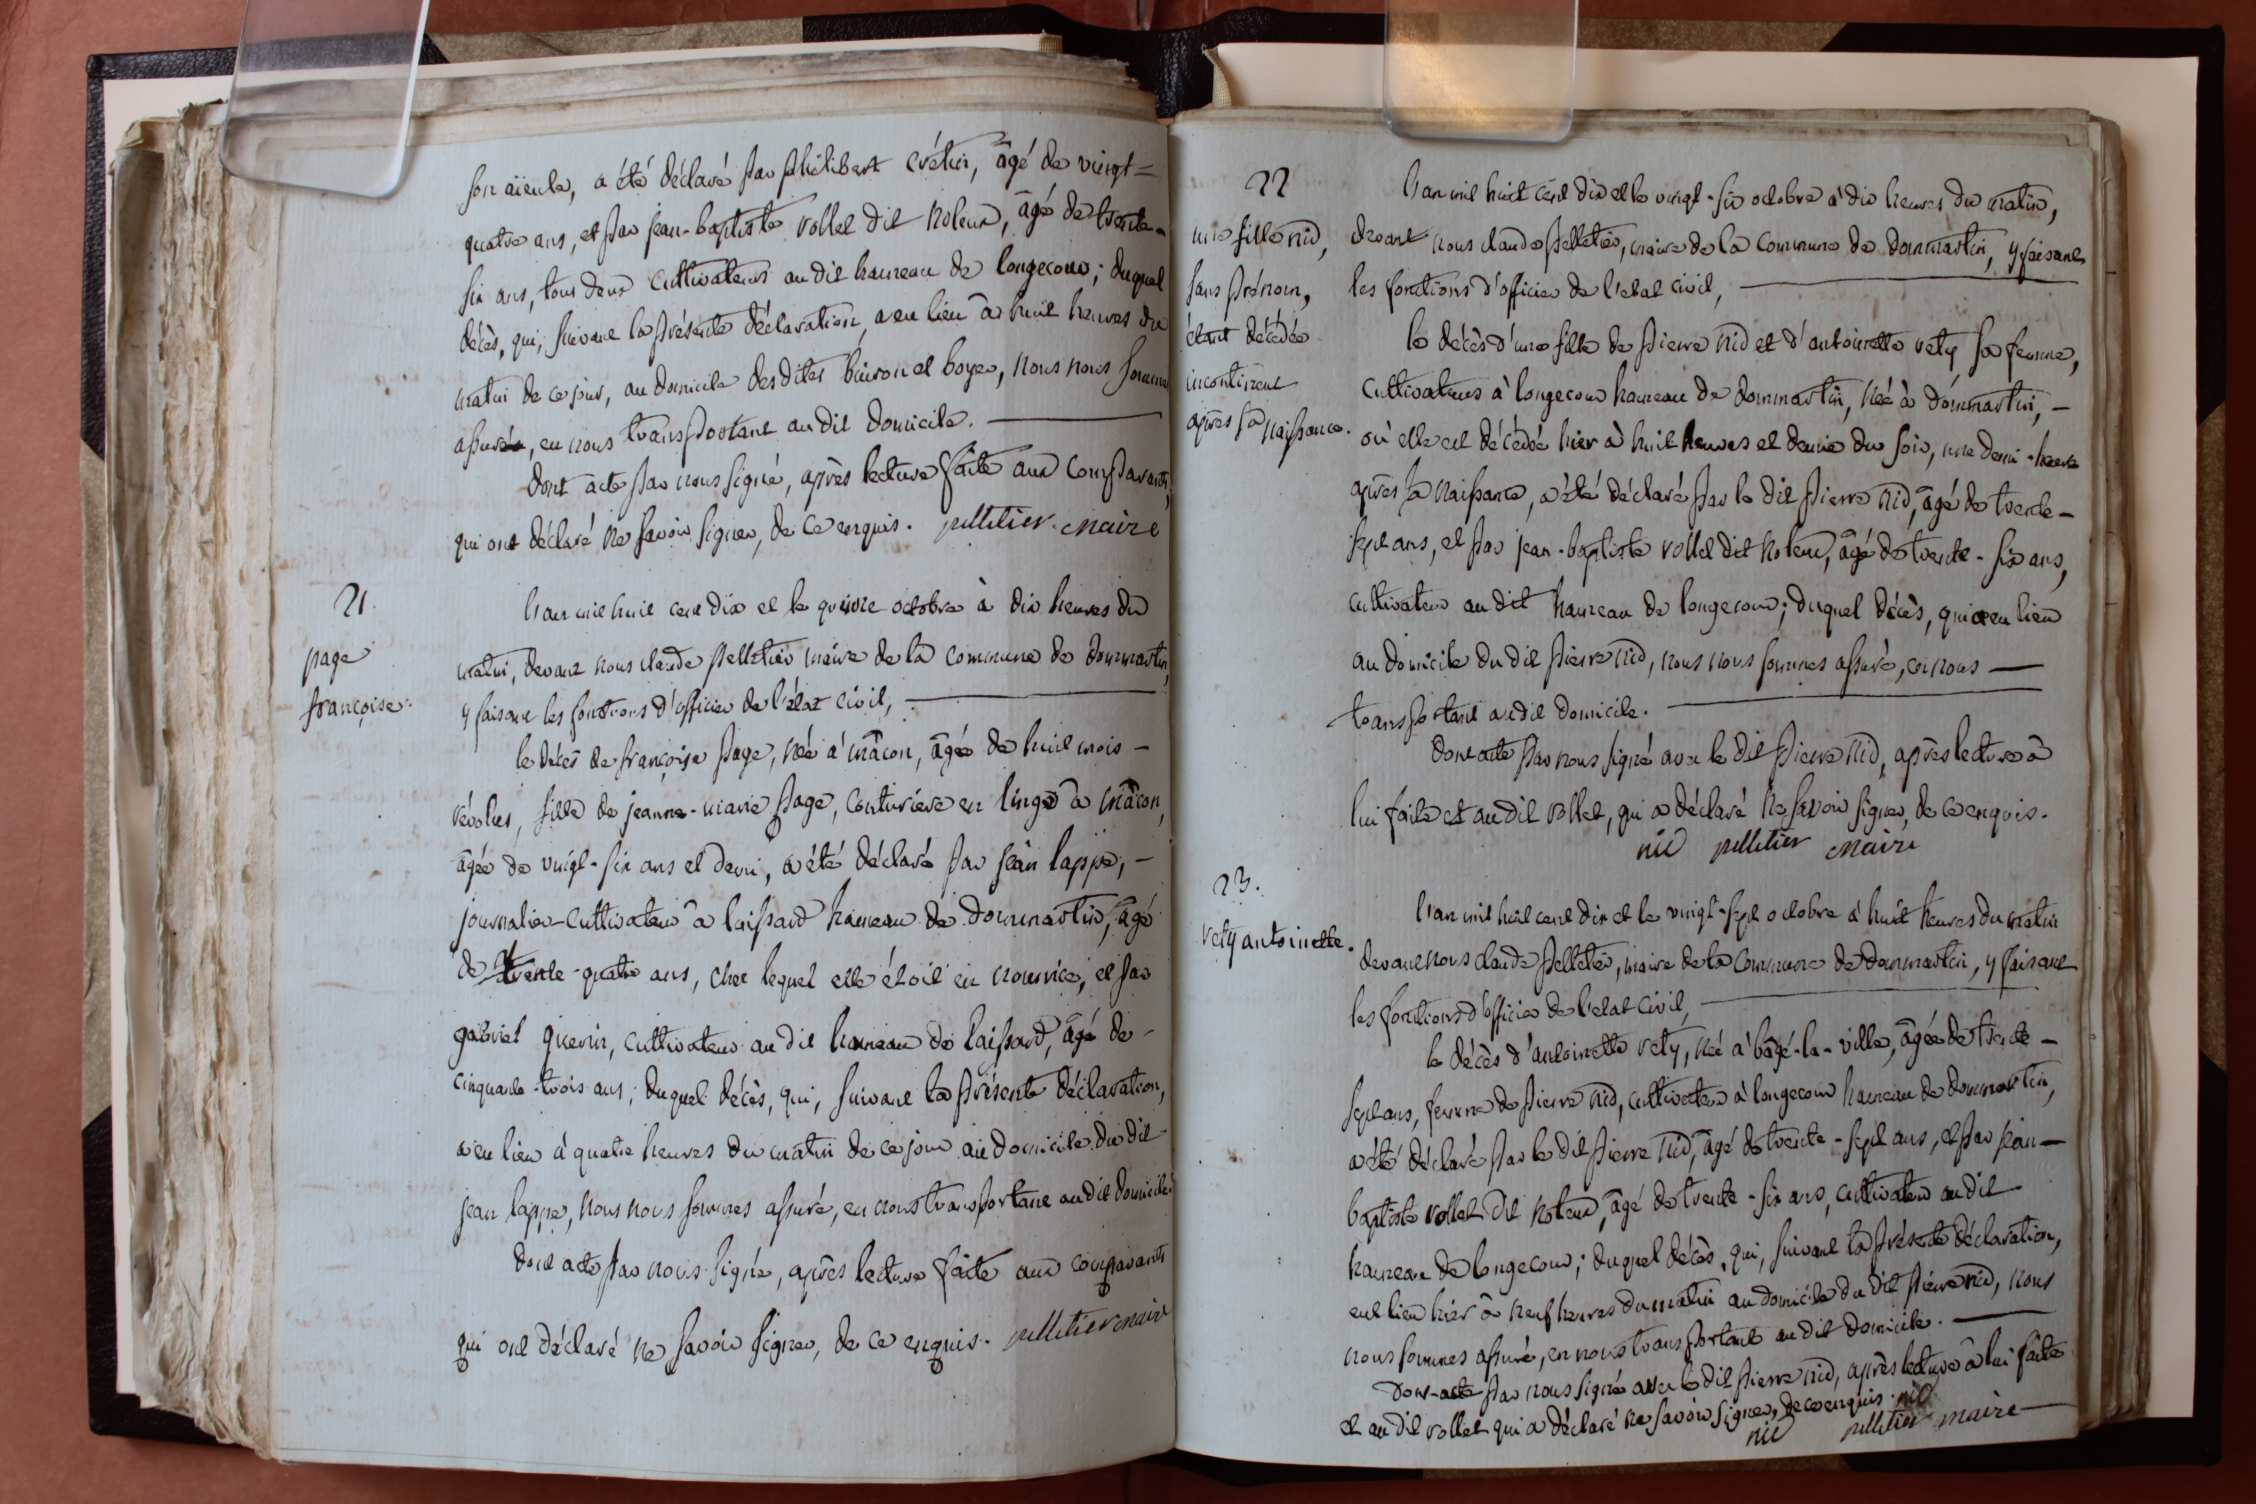 son aïeule, a été déclaré par philibert crétin, âgé de vingt=
quatre ans, et par jean-baptiste vollet dit noleur, âgé de trente-
six ans, tous deux cultivateurs au dit hameau de longecour; duquel
décès, qui, suivant la présente déclaration, a eu lieu à huit heures du
matin de ce jour, au domicile des dites buiron et boyer, nous nous sommes
assuré, en nous transportant au dit domicile.
dont acte par nous signé, après lecture faite aux comparants,
qui ont déclaré ne savoir signer, de ce enquis. pelletier maire
21.
page
françoise.
l'an mil huit cent dix et le quinze octobre à dix heures du
matin, devant nous claude pelletier maire de la commune de dommartin,
y faisant les fonctions d'officier de l'état civil,
le décès de françoise page, née à mâcon, âgée de huit mois -
révolus, fille de jeanne-marie page, couturière en linge à mâcon,
âgée de vingt-six ans et demi, a été déclaré par jean lappe, -
journalier-cultivateur à laissard hameau de dommartin, âgé
de trente-quatre ans, chez lequel elle étoit en nourrice, et par
gabriel guerin, cultivateur au dit hameau de laissard, âgé de -
cinquante-trois ans; duquel décès, qui, suivant la présente déclaration,
a eu lieu à quatre heures du matin de ce jour au domicile du dit
jean lappe, nous nous sommes assuré, en nous transportant au dit domicile.
dont acte par nous signé, après lecture faite aux comparants
qui ont déclaré ne savoir signer, de ce enquis. pelletier maire
22
une fille nid,
sans prénom,
étant décédée
incontinent
après sa naissance.
l'an mil huit cent dix et le vingt-six octobre à dix heures du matin,
devant nous claude pelletier, maire de la commune de dommartin, y faisant
les fonctions d'officier de l'etat civil,
le décès d'une fille de pierre nid et d'antoinette vety sa femme,
cultivateurs à longecour hameau de dommartin, née à dommartin, -
où elle est décédée hier à huit heures et demie du soir, une demi-heure
après sa naissance, a été déclaré par le dit pierre nid, âgé de trente-
sept ans, et par jean-baptiste vollet dit noleur, âgé de trente-six ans,
cultivateur au dit hameau de longecour; duquel décès, qui a eu lieu
au domicile du dit pierre nid, nous nous sommes assuré, en nous
transportant au dit domicile.
dont acte par nous signé avec le dit pierre nid, après lecture à
lui faite et au dit vollet, qui a déclaré ne savoir signer, de ce enquis.
nid pelletier maire
23.
vety antoinette.
l'an mil huit cent dix et le vingt-sept octobre à huit heures du matin
devant nous claude pelletier, maire de la commune de dommartin, y faisant
les fonctions d'officier de l'etat civil,
le décès d'antoinette vety, née à bâgé-la-ville, âgée de trente -
sept ans, femme de pierre nid, cultivateur à longecour hameau de dommartin,
a été déclaré par le dit pierre nid, âgé de trente-sept ans, et par jean-
baptiste vollet dit noleur, âgé de trente-six ans, cultivateur au dit
hameau de longecour; duquel décès, qui, suivant la présente déclaration,
eut lieu hier à neuf heures du matin au domicile du dit pierre nid, nous
nous sommes assuré, en nous transportant au dit domicile.
dont acte par nous signé avec le dit pierre nid, après lecture à lui faite
et au dit vollet qui a déclaré ne savoir signer, de ce enquis. nid
nid pelletier maire